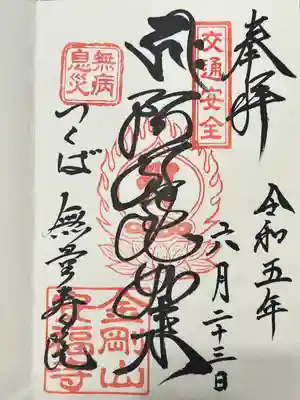 奉拝
令和五年
六月二十三日
交通安全
阿弥陀如来
無病息災
つくば 無量寿院
金剛山